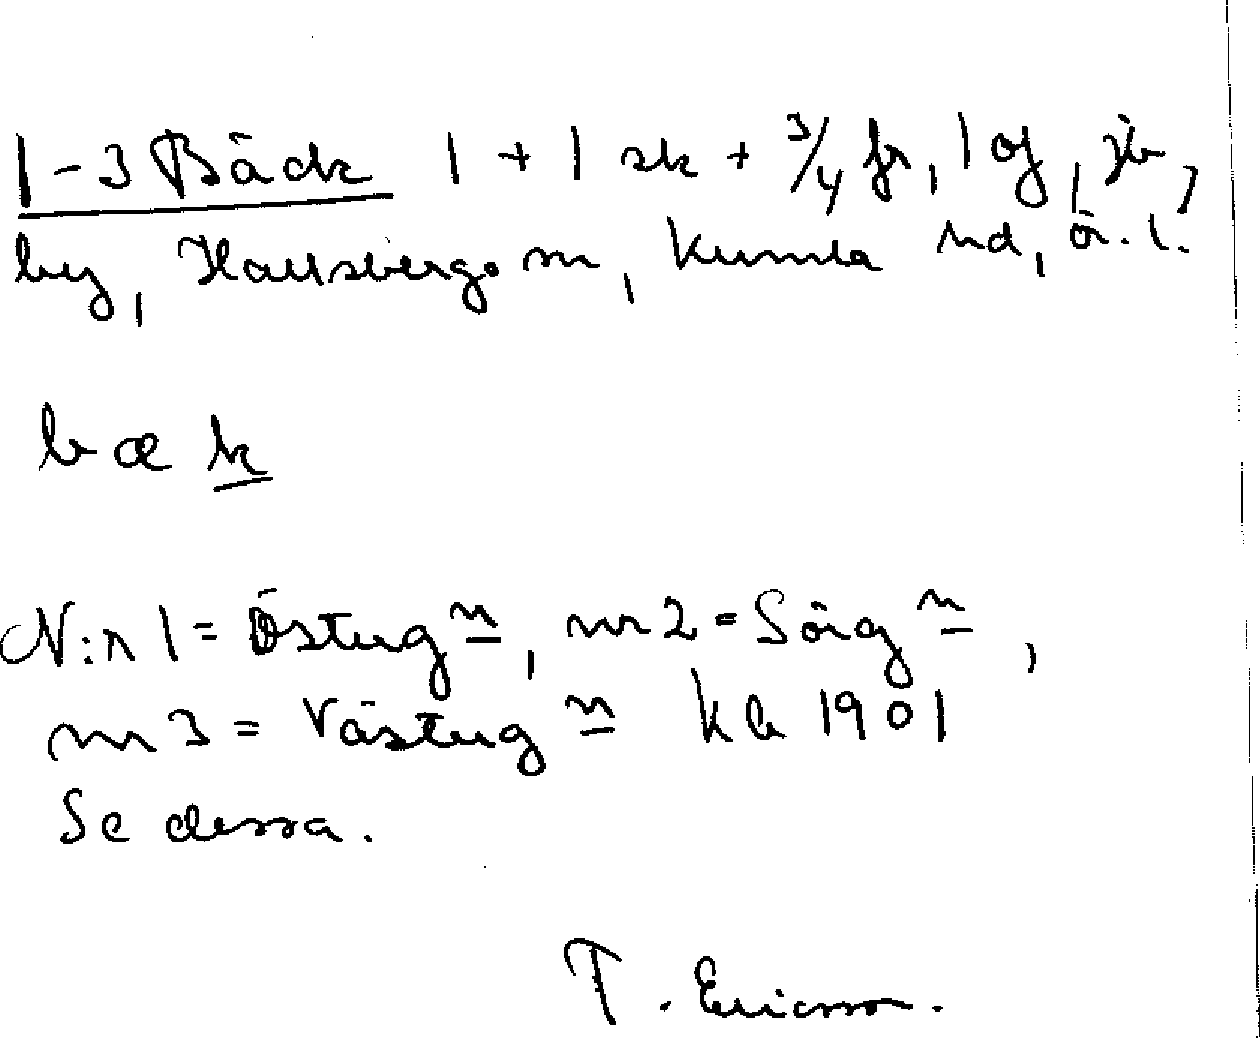 1-3 Bäck 1 + 1 sk + 3/4 fr, 1 of, jb,
by, Hallsbergs sn, Kumla hd, ör. l.
bæk
N:r 1 = Östug n, nr 2 = Sörg n,
nr 3 = Västug n kb 1901
Se dessa.
T. Ericsson.